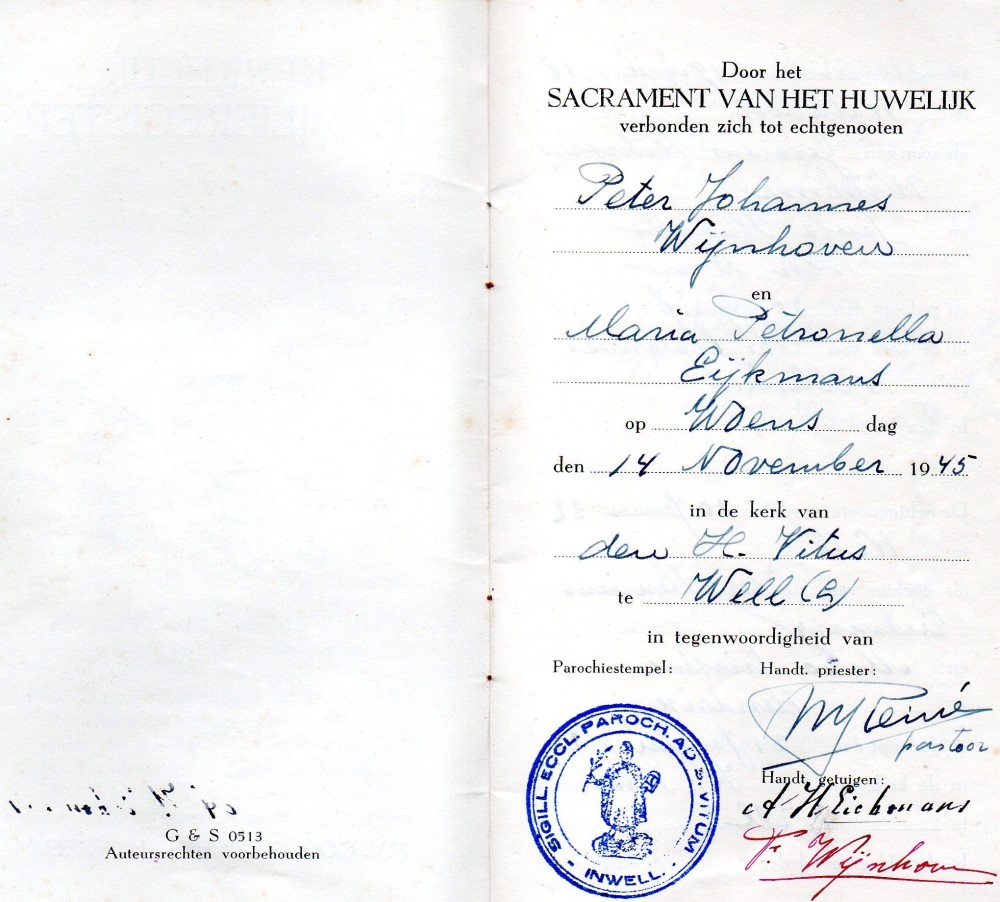 G & S 0513
Auteursrechten voorbehouden
Door het
SACRAMENT VAN HET HUWELIJK
verbonden zich tot echtgenooten
Peter Johannes
Wijnhoven
en
Maria Petronella
Eijkmans
op Woens dag
den 14 November 1945
in de kerk van
den H. Vitus
te Well (L)
in tegenwoordigheid van
Parochiestempel: Handt. priester:
pastoor
SIGILL. ECCL. PAROCH. AD S. VITUM
INWELL.
Handt. getuigen:
Wijnhoven